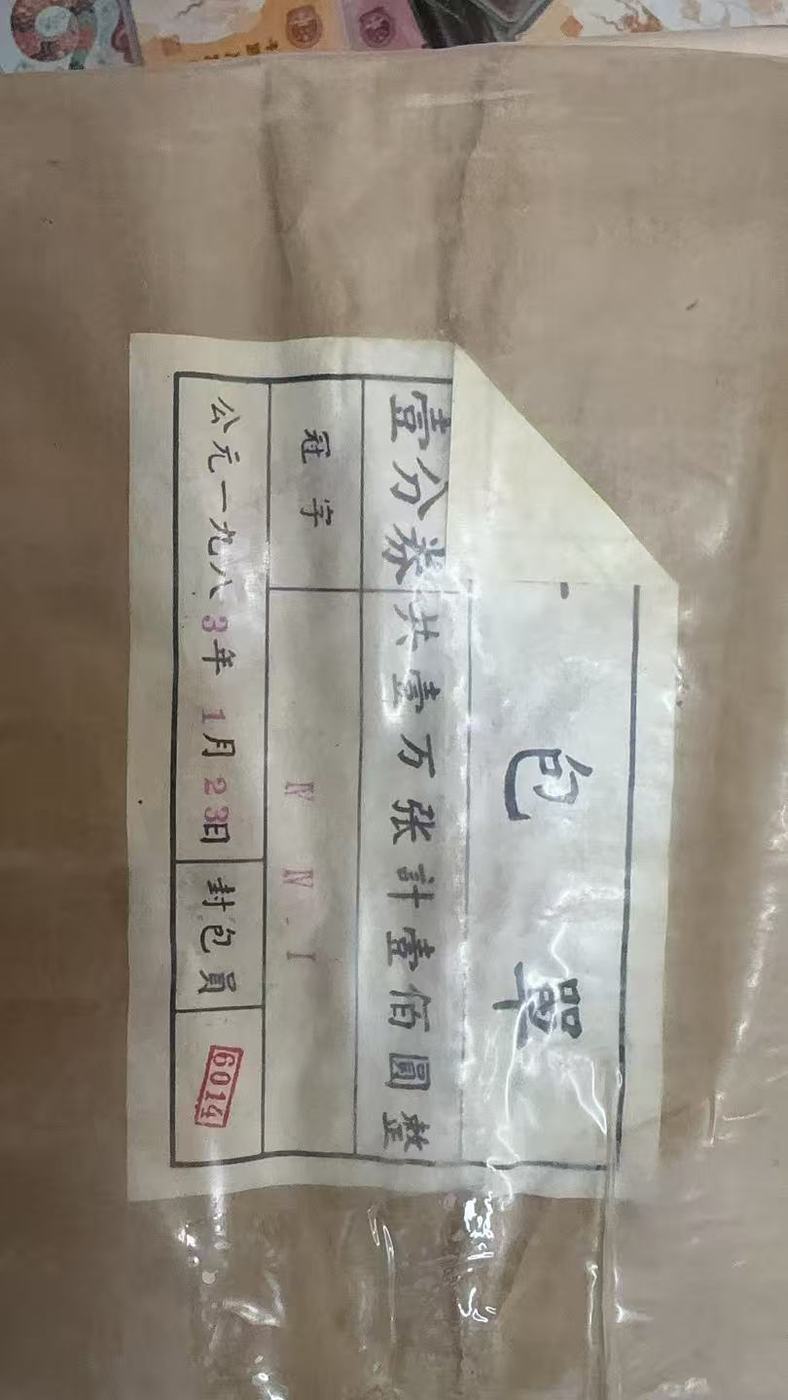 包單
壹分券共壹万张計壹佰圓整
冠字 N N . I
公元一九八3年 1月 23日 封包員 6014